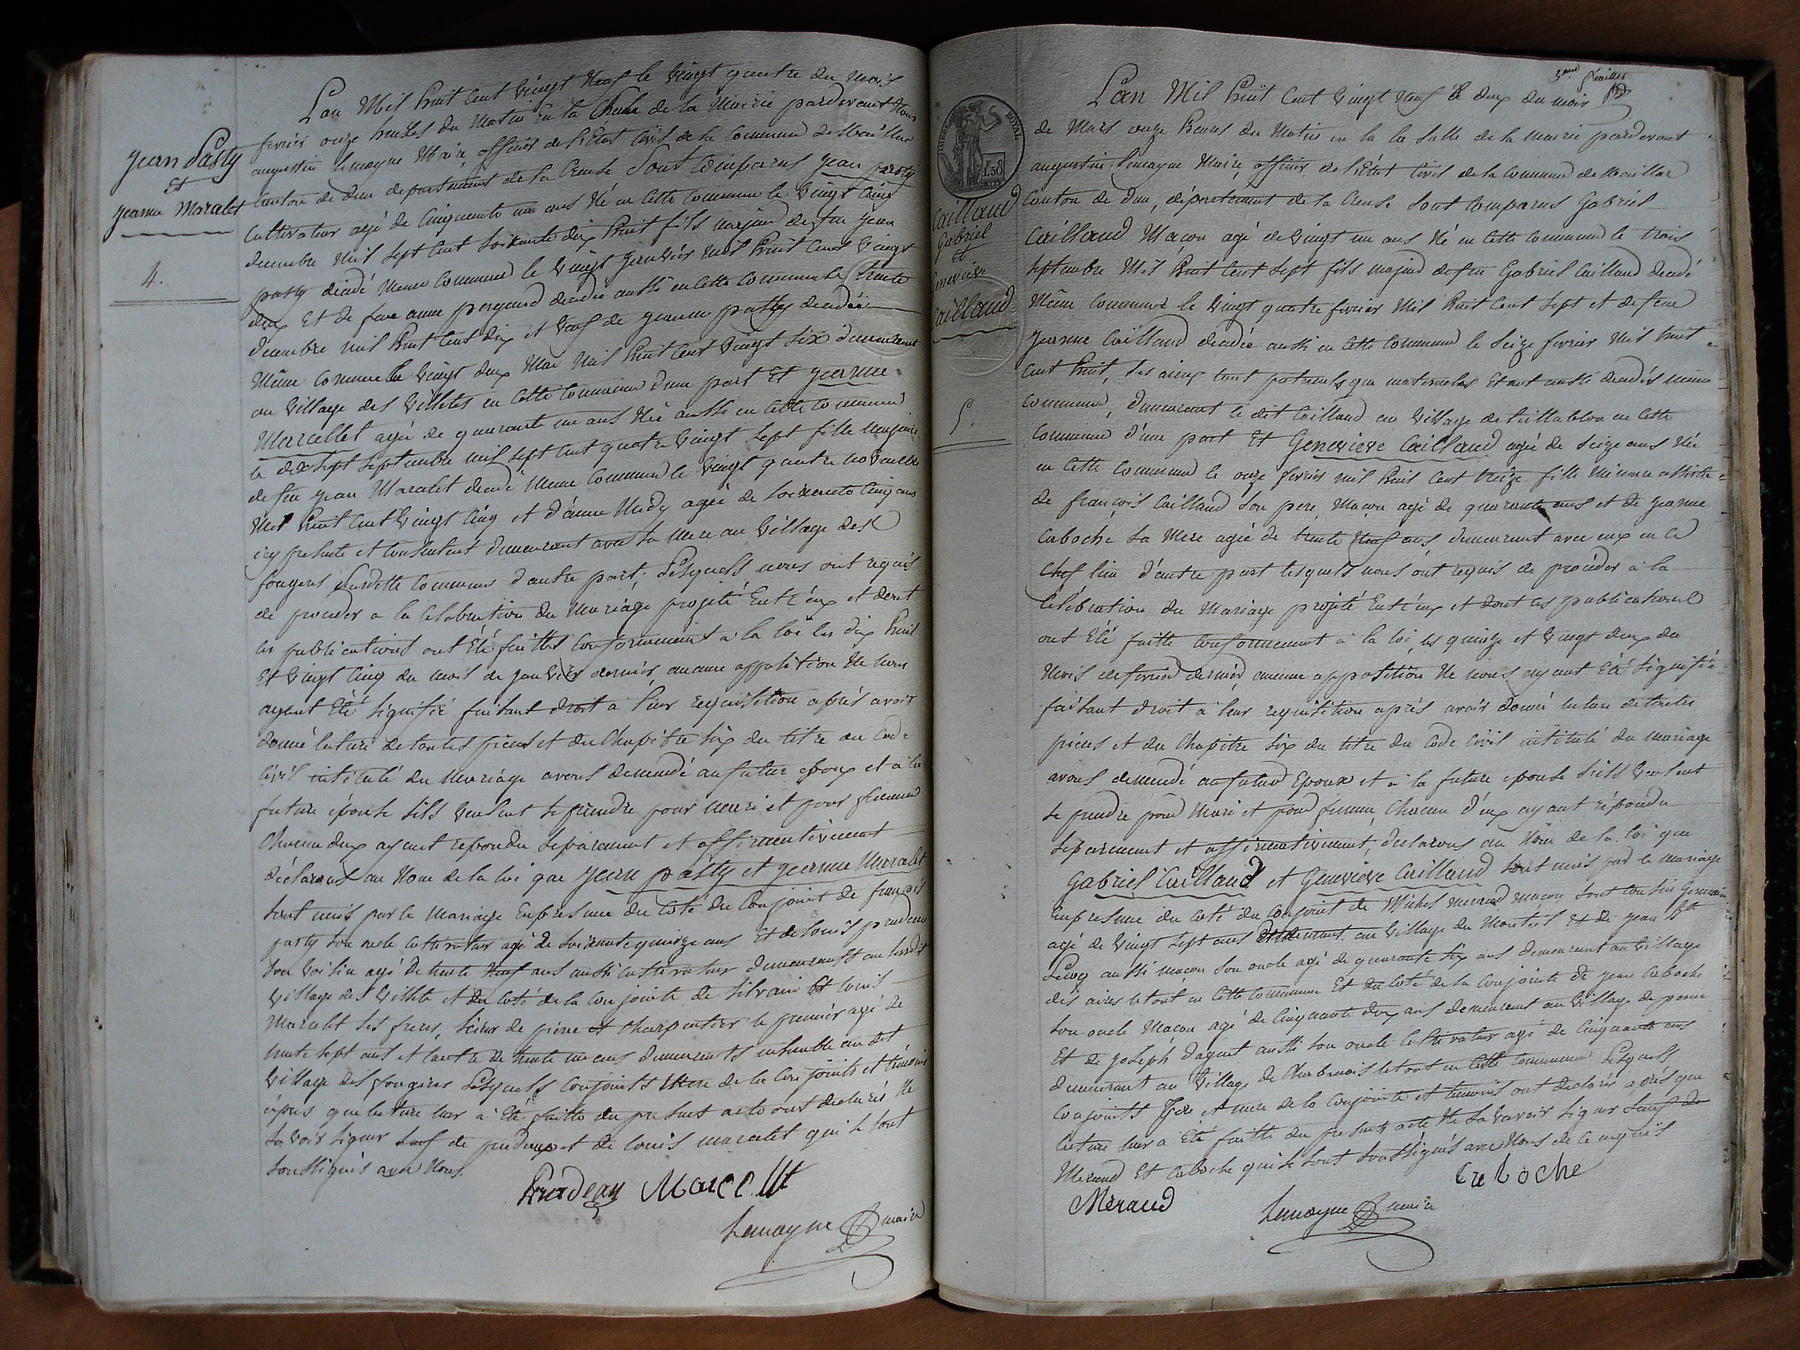 Jean Pasty
Et
Jeanne Maralet
4.
L'an Mil huit Cent Vingt Neuf le Vingt quatre du Mois
fevrier onze heures du Matin en la Salle de la Mairie pardevant Nous
augustin Lemoyne Maire, officier de l'Etat Civil de la Commune de
Canton de Dun departement de la Creuse Sont Comparus Jean pasty
Cultivateur agé de Cinquante un ans Né en Cette Commune le Vingt Cinq
decembre Mil Sept Cent Soixante dix huit fils majeur de feu Jean
pasty décédé Meme Commune le Vingt Janvier Mil huit Cent Vingt
deux Et de feue anne décedée aussi en cette Commune le trente
decembre mil huit Cent dix et Veuf de Jeanne pasty decedée
Même Commune le Vingt deux Mai Mil huit Cent Vingt Six demeurant
au Village des Villettes en Cette Commune d'une part Et Jeanne
Marcellet agée de quarante un ans Née aussi en Cette Commune
le dix Sept Septembre mil Sept Cent quatre Vingt Sept fille Majeure
de feu Jean Maralet decedé Meme Commune le Vingt quatre novembre
Mil huit Cent Vingt Cinq et d'anne agée de Soixante Cinq ans
icy presente et Consentant demeurant avec Sa Mere au Village des
fougeres Susditte Commune d'autre part. Lesquels nous ont requis
de proceder a la Celebration du Mariage projeté Entr'eux et dont
les publications ont Eté faittes Conformement à la loi les dix huit
Et Vingt Cinq du mois de Janvier dernier aucune opposition Ne nous
ayant Eté Signifié faisant droit a leur requisition après avoir
donné lecture de toutes pieces et du Chapitre Six du titre du Code
Civil intitulé du Mariage avons demandé au futur Epoux et à la
future épouse S'ils Veulent Se prendre pour mari et pour femme
Chacun deux ayant repondu Separement et affirmativement
déclarons au Nom de la loi que Jean pasty et Jeanne Maralet
Sont unis par le Mariage En presence du Coté du Conjoint de françois
pasty Son oncle Cultivateur agé de Soixante quinze ans Et de Louis prudeau
Son Voisin agé de trente Neuf ans aussi Cultivateur demeurants au Susdit
Village des Villette et du Coté de la Conjointe de Silvain Et Louis
Maralet Ses freres, Scieur de pierre et Charpentier le premier agé de
trente Sept ans et l'autre de trente un ans demeurants ensemble au dit
Village des fougeres Lesquels Conjoints Mere de la Conjointe et témoins
après que lecture leur à Eté faitte du present acte ont declarés Ne
Savoir Signer Sauf de prudeau et de Louis maralet qui Se Sont
Soussignés avec Nous.
Prudeau Marcellt
Lemoyne maire
3eme feuillet
TIMBRE ROYAL
1.50
Caillaud
Gabriel
Et
Genevieve
Caillaud
5.
L'an Mil huit Cent Vingt Neuf le deux du mois
de Mars onze heures du Matin en la Salle de la Mairie pardevant
augustin Lemoyne Maire, officier de l'Etat Civil de la Commune de
Canton de Dun, département de la Creuse Sont Comparus Gabriel
Caillaud Macon agé de Vingt un ans Né en Cette Commune le trois
Septembre Mil huit Cent Sept fils majeur de feu Gabriel Caillaud decedé
Même Commune le Vingt quatre fevrier Mil huit Cent Sept et de feue
Jeanne Caillaud decedée aussi en Cette Commune le Seize fevrier Mil huit
Cent huit, Ses aieux tant paternels que maternels Etant aussi decedés même
Commune, demeurant le dit Caillaud au Village de en Cette
Commune d'une part Et Genevieve Caillaud agée de Seize ans Née
en Cette Commune le onze fevrier mil huit Cent treize fille Mineure assistée
de françois Caillaud Son pere, Macon agé de quarante ans et de Jeanne
Caboche Sa Mere agée de trente Neuf ans demeurant avec eux en Ce
Chef lieu d'autre part lesquels nous ont requis de proceder à la
Célébration du Mariage projeté Entr'eux et dont les publications
ont Eté faitte Conformement à la loi, les quinze et Vingt deux du
Mois de fevrier dernier, aucune opposition Ne nous ayant Eté Signifiée
faisant droit à leur requisition après avoir donné lecture de toutes
pieces et du Chapitre Six du titre du Code Civil intitulé du mariage
avons demandé au futur Epoux et à la future épouse S'ils Veulent
Se prendre pour Mari et pour femme, Chacun d'eux ayant répondu
Separement et affirmativement, declarons au Nom de la loi que
Gabriel Caillaud et Genevieve Caillaud Sont unis par le mariage
En presence du Coté du Conjoint de Michel Meraud macon Son Cousin Germain
agé de Vingt Sept ans demeurant au Village du Monteil Et de Jean Bte
aussi macon Son oncle agé de quarante Six ans demeurant au Village
des aires le tout en Cette Commune Et du Coté de la Conjointe de Jean Caboche
Son oncle Macon agé de Cinquante deux ans demeurant au Village de
Et de Joseph aussi Son oncle Cultivateur agé de Cinquante ans
demeurant au Village de le tout en Cette Commune Lesquels
Conjoints Père et mere de la Conjointe et temoins ont declarés après que
lecture leur a Eté faitte du present acte Ne Savoir Signer Sauf de
Meraud Et Caboche qui Se Sont Soussignés avec Nous de Ce requis
Meraud Caboche
Lemoyne maire